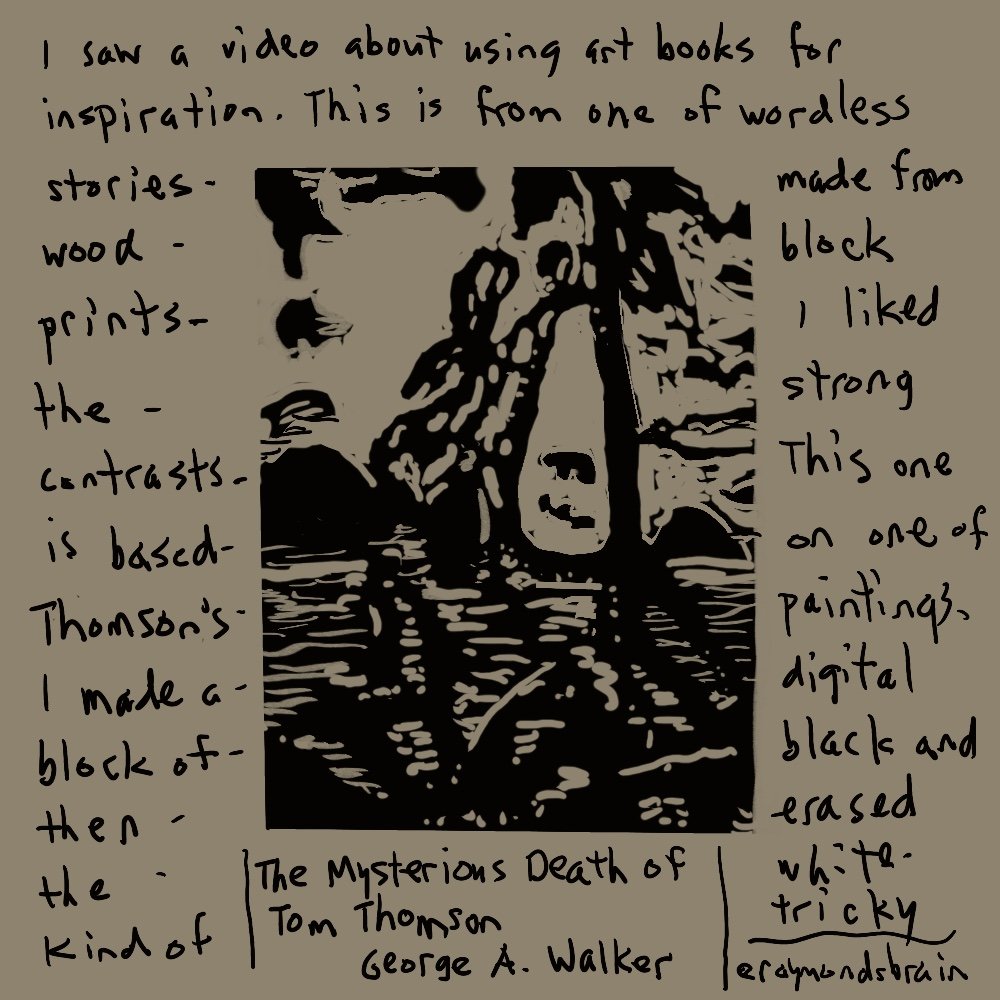 I saw a video about using art books for
inspiration. This is from one of wordless
stories - made from
wood - block
prints - I liked
the - strong
contrasts - This one
is based - on one of
Thomson's - paintings.
I made a - digital
block of - black and
then - erased
the - white -
kind of tricky
The Mysterious Death of
Tom Thomson
George A. Walker
eraymondsbrain